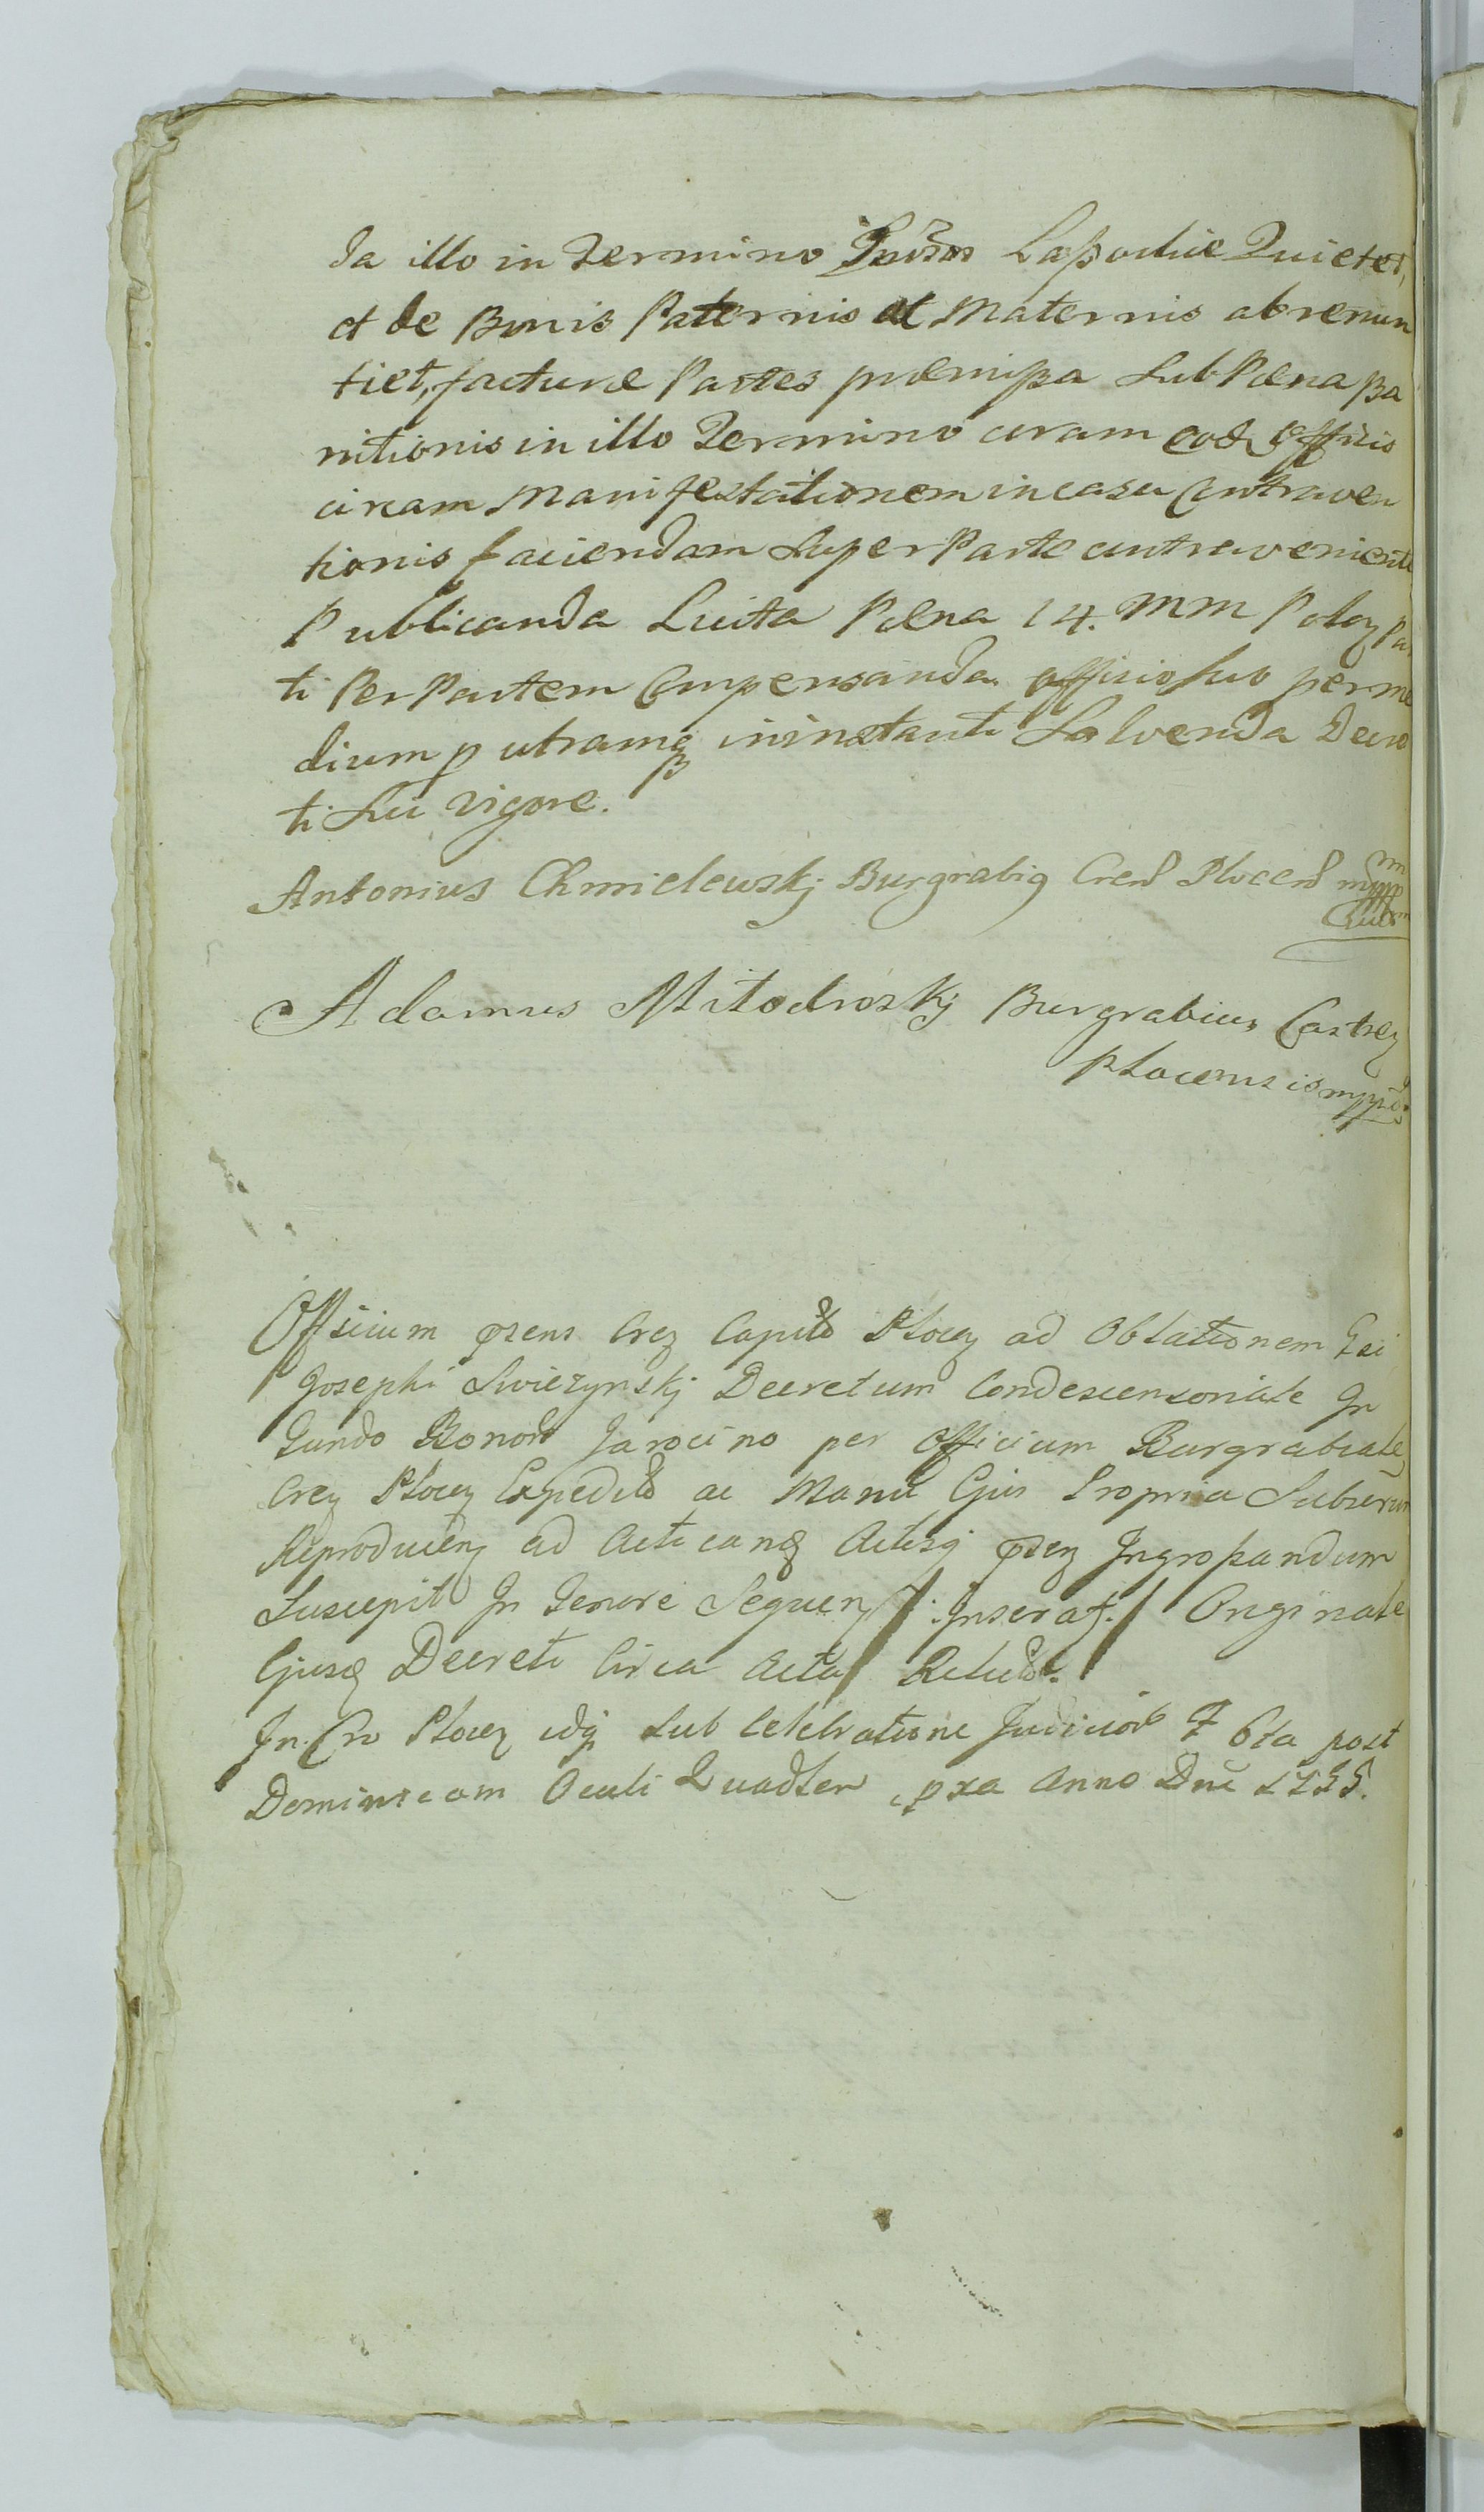 da illo in Termino Lapoduie Quietet,
et de Bonis Paternis et Maternis abrenun
tiet, facturæ Partes præmißa sub Pæna ßa
nitionis in illo Termino coram eod officio
circam Manifestationem in casu Contraven
tionis faciendam super Parte contraveniente
Publicanda Luita Pæna 14. MM Poloz Par
ti Per Partem Compensanda officio suo per me
dium p utramq in instanti Solvenda Decre
ti sui vigore.
Antonius Chmielewskj Burgrabig Cren Plocen
Adamus Mitodroskj Burgrabius Castren
Plocensis mpp
Officium prens Crez Capitlo Plocez ad Oblationem Gsi
Josephi Swiezynskj Decretum Condescensoriale In
Fundo Bonor Jarocino per Officium Burgrabiale
Crez Plocez Expedito ac Manu Ejus Propria Subscrip
Reproducenz ad Acticand Actisq prez Ingroßandum
Suscepit In Tenore Sequenz /: Inserat. :/ Originale
Ejusd Decreti Circa Acta Relicto.
In Cro Plocez idq sub Celebratione Judicior F 6ta post
Dominicam Oculi Quadlen pxa Anno Dni